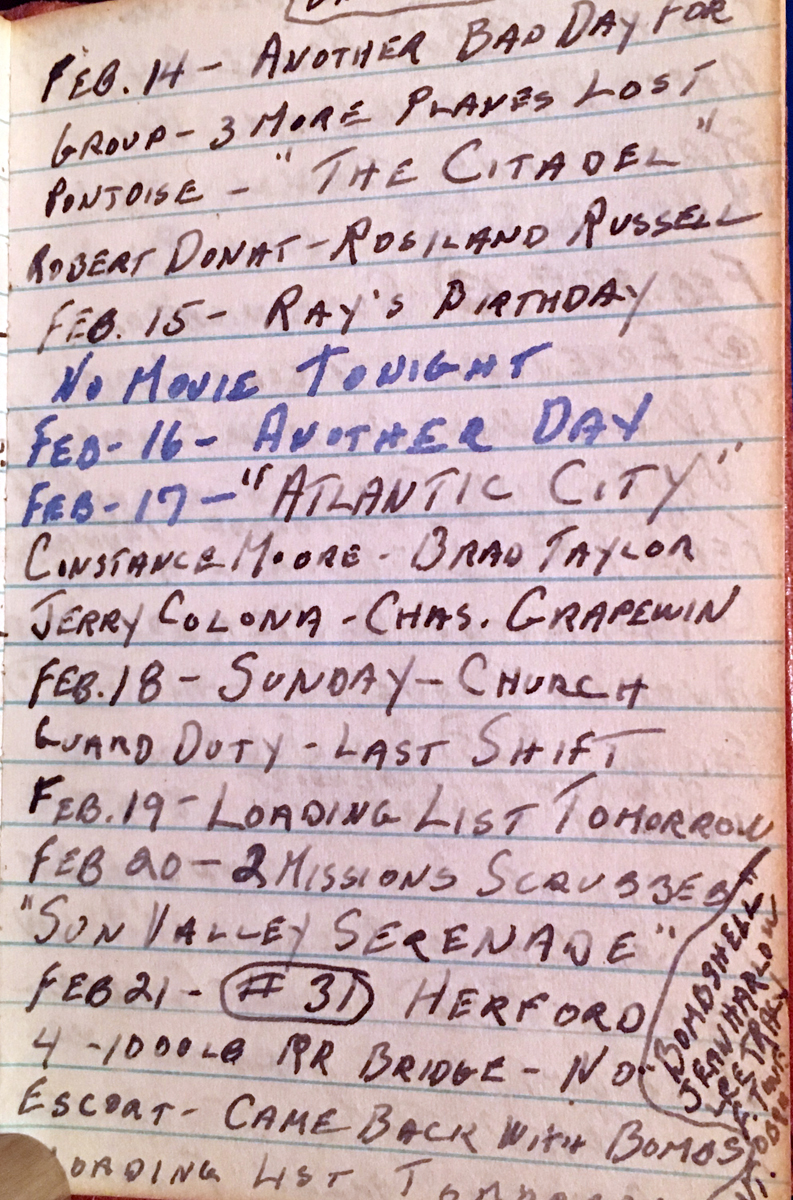 FEB. 14 - ANOTHER BAD DAY FOR
GROUP - 3 MORE PLANES LOST
PONTOISE - "THE CITADEL"
ROBERT DONAT - ROSILAND RUSSELL
FEB. 15 - RAY'S BIRTHDAY
NO MOVIE TONIGHT
FEB - 16 - ANOTHER DAY
FEB - 17 - "ATLANTIC CITY"
CONSTANCE MOORE - BRAD TAYLOR
JERRY COLONA - CHAS. GRAPEWIN
FEB. 18 - SUNDAY - CHURCH
GUARD DUTY - LAST SHIFT
FEB. 19 - LOADING LIST TOMORROW
FEB 20 - 2 MISSIONS SCRUBBED
"SUN VALLEY SERENADE"
FEB 21 - #31 HERFORD
4 - 1000LB RR BRIDGE - NO
ESCORT - CAME BACK WITH BOMBS
LOADING LIST
BOMBSHELL
JEAN HARLOW
LEE TRACY